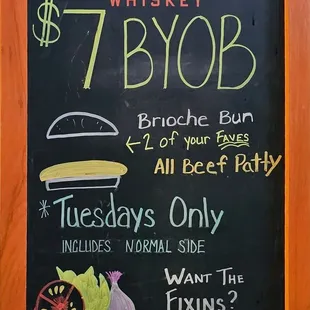 WHISKEY
$7 BYOB
Brioche Bun
←2 of your FAVES
All Beef Patty
*Tuesdays Only
INCLUDES NORMAL SIDE
WANT THE
FIXINS?